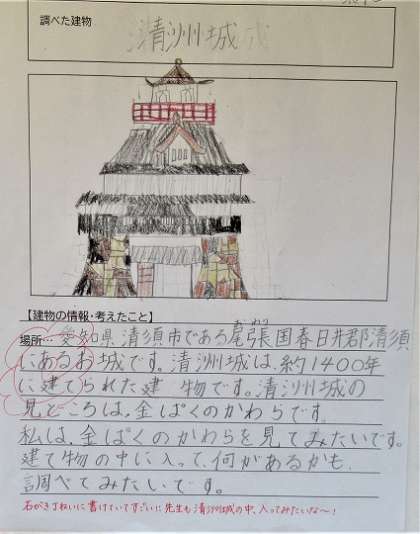 調べた建物
清洲州城
【建物の情報・考えたこと】
場所…愛知県 清須市である尾張国春日井郡清須
にあるお城です。清洲城は、約1400年
に建てられた建物です。清洲城の
見どころは、金ぱくのかわらです。
私は、金ぱくのかわらを見てみたいです。
建て物の中に入って、何があるかも、
調べてみたいです。
石がきていねいに書けていてすごい!先生も清洲城の中、入ってみたいな〜!